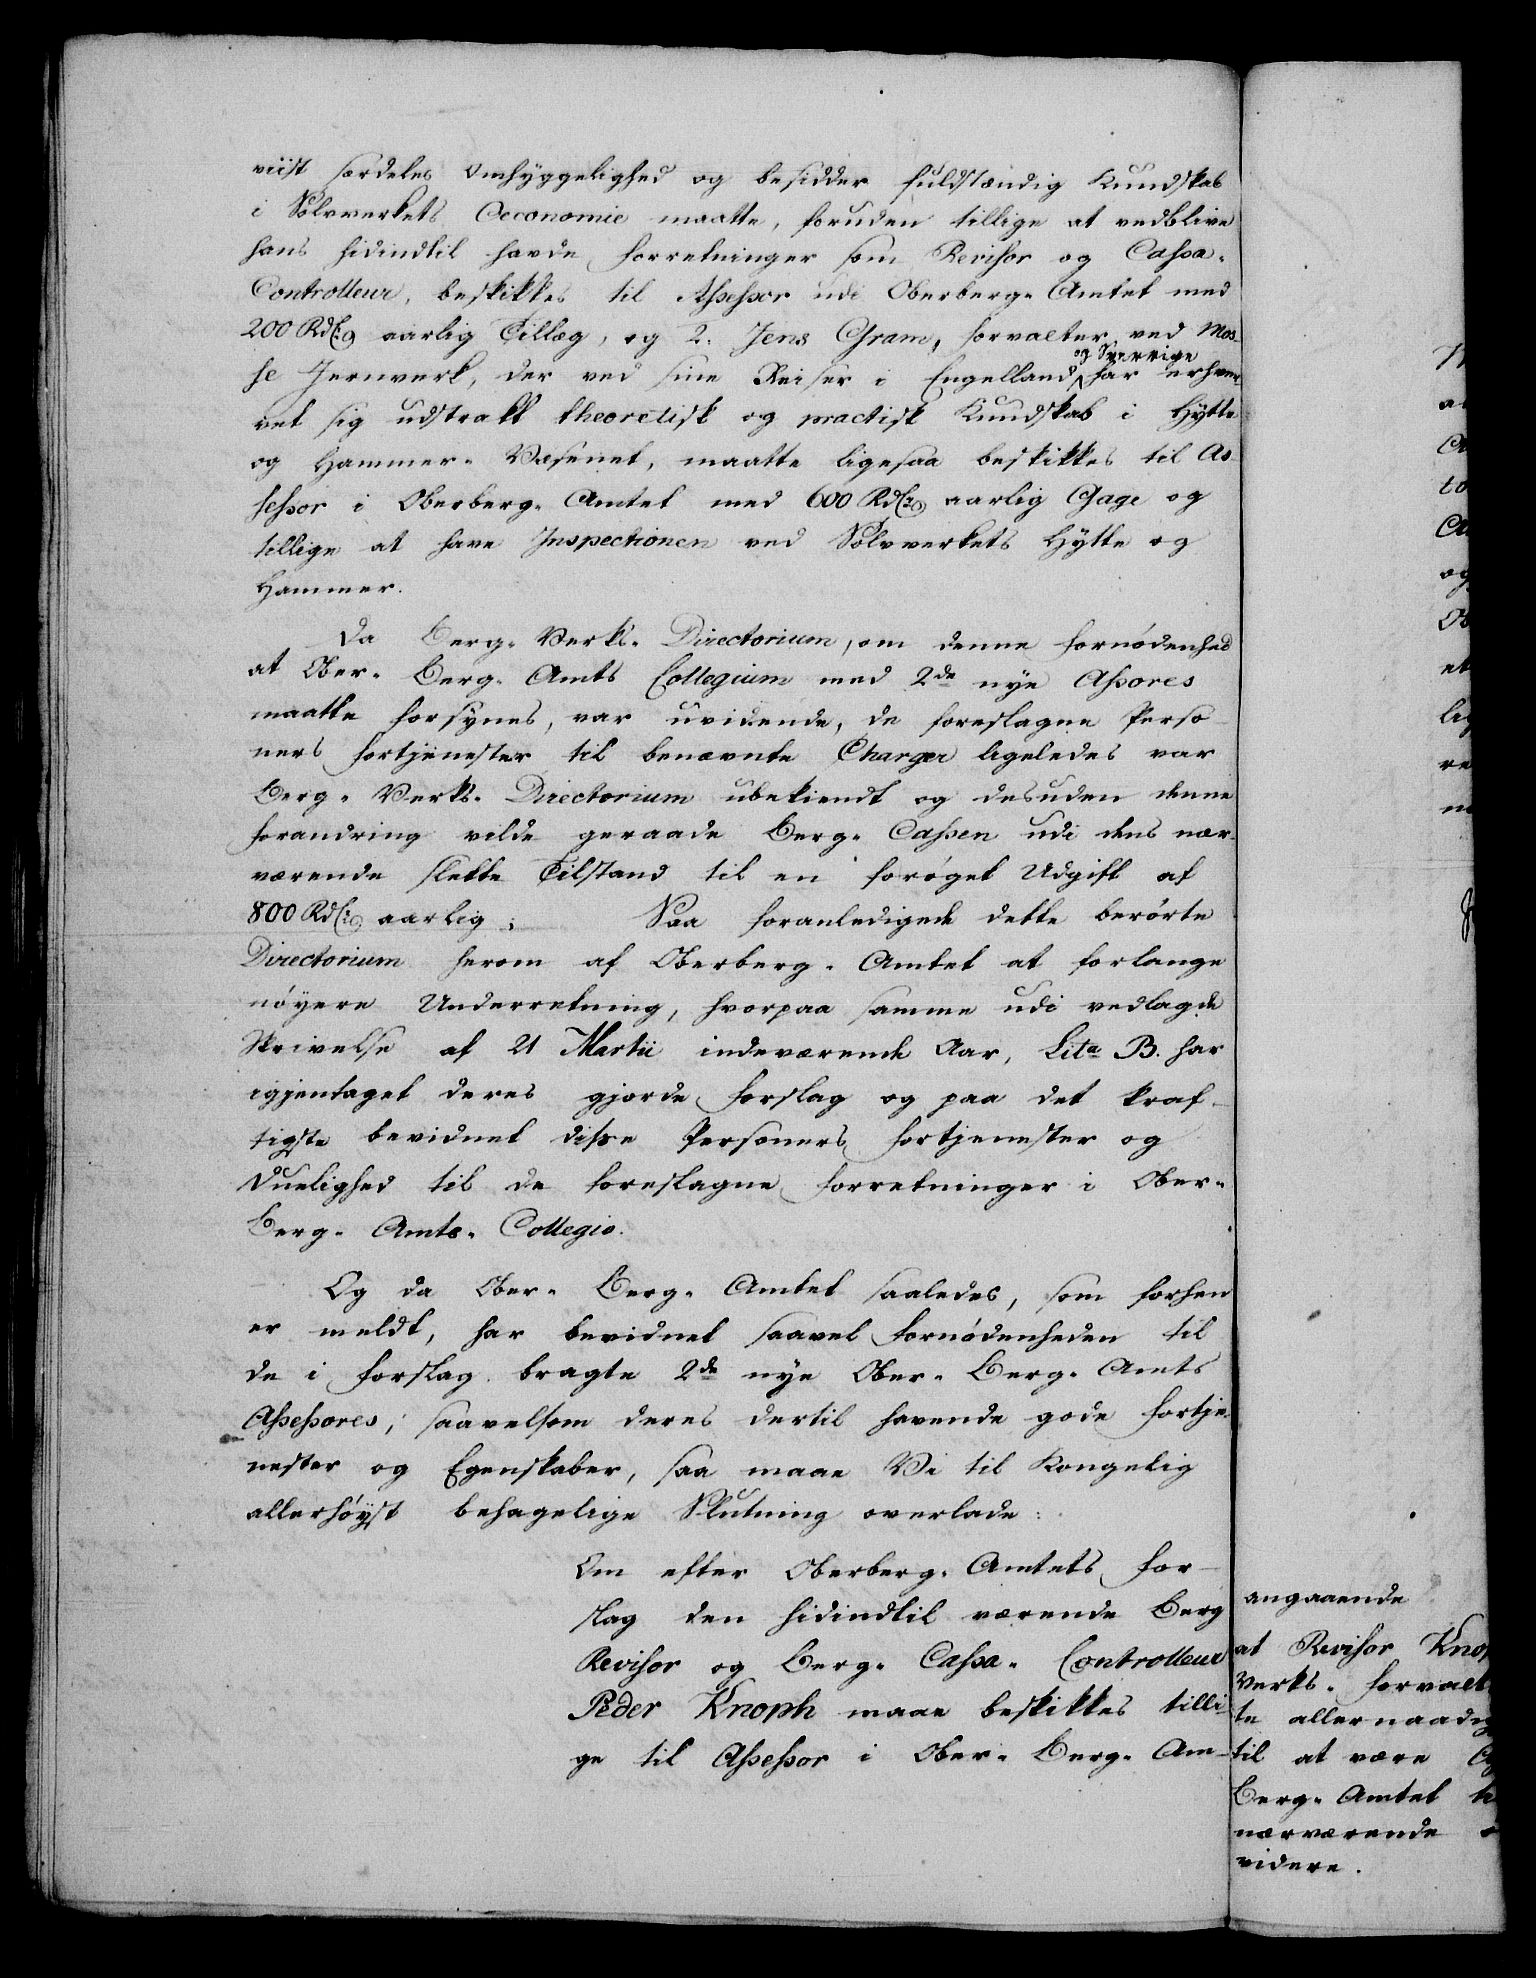 viist særdeles Omhyggelighed og besidder fuldstændig Kundskab
i Sølvverkets Oeconomie maatte, foruden tillige at vedblive
hans hidindtil havde Forretninger som Revisor og Cassa-
Controlleur, beskikkes til Assessor udi Oberberg-Amtet med
200 Rdlr aarlig Tillæg, og 2. Jens Gram, Forvalter ved Mos-
se Jernverk, der ved sine Reiser i Engelland og Sverrige har erhver-
vet sig udstrakt theoretisk og practisk Kundskab i Hytte
og Hammer-Væsenet, maatte ligesaa beskikkes til As-
sessor i Oberberg-Amtet med 600 Rdlr aarlig Gage og
tillige at have Inspectionen ved Sølvverkets Hytte og
Hammer.
Da Berg-Verks-Directorium, om denne Fornødenhed
at Ober-Berg-Amts Collegium med 2de nye Assores
maatte forsynes, var uvidende, de foreslagne Perso-
ners Fortjenester til benævnte Charger ligeledes var
Berg-Verks-Directorium ubekiendt og desuden denne
Forandring vilde geraade Berg-Cassen udi dens nær-
værende slette Tilstand til en forøget Udgift af
800 Rdlr aarlig; Saa foranledigede dette berørte
Directorium herom af Oberberg-Amtet at forlange
nøyere Underretning, hvorpaa samme udi vedlagde
Skrivelse af 21 Martii indeværende Aar, Lita B. har
igjentaget deres gjorde Forslag og paa det kraf-
tigste bevidnet disse Personers Fortjenester og
Duelighed til de foreslagne Forretninger i Ober-
Berg-Amts-Collegio.
Og da Ober-Berg-Amtet saaledes, som forhen
er meldt, har bevidnet saavel Fornødenheden til
de i Forslag bragte 2de nye Ober-Berg-Amts
Assessores, saavelsom deres dertil havende gode Fortje-
nester og Egenskaber, saa maae Vi til Kongelig
allerhøyst behagelige Slutning overlade:
Om efter Oberberg-Amtets For-
slag den hidindtil værende Berg
Revisor og Berg-Cassa-Controlleur
Peder Knoph maae beskikkes tilli-
ge til Assessor i Ober-Berg-Am-
angaaende
at Revisor Knop
Verks-Forvalt
te allernaadig
til at være
Berg-Amtet
nærværende
videre.